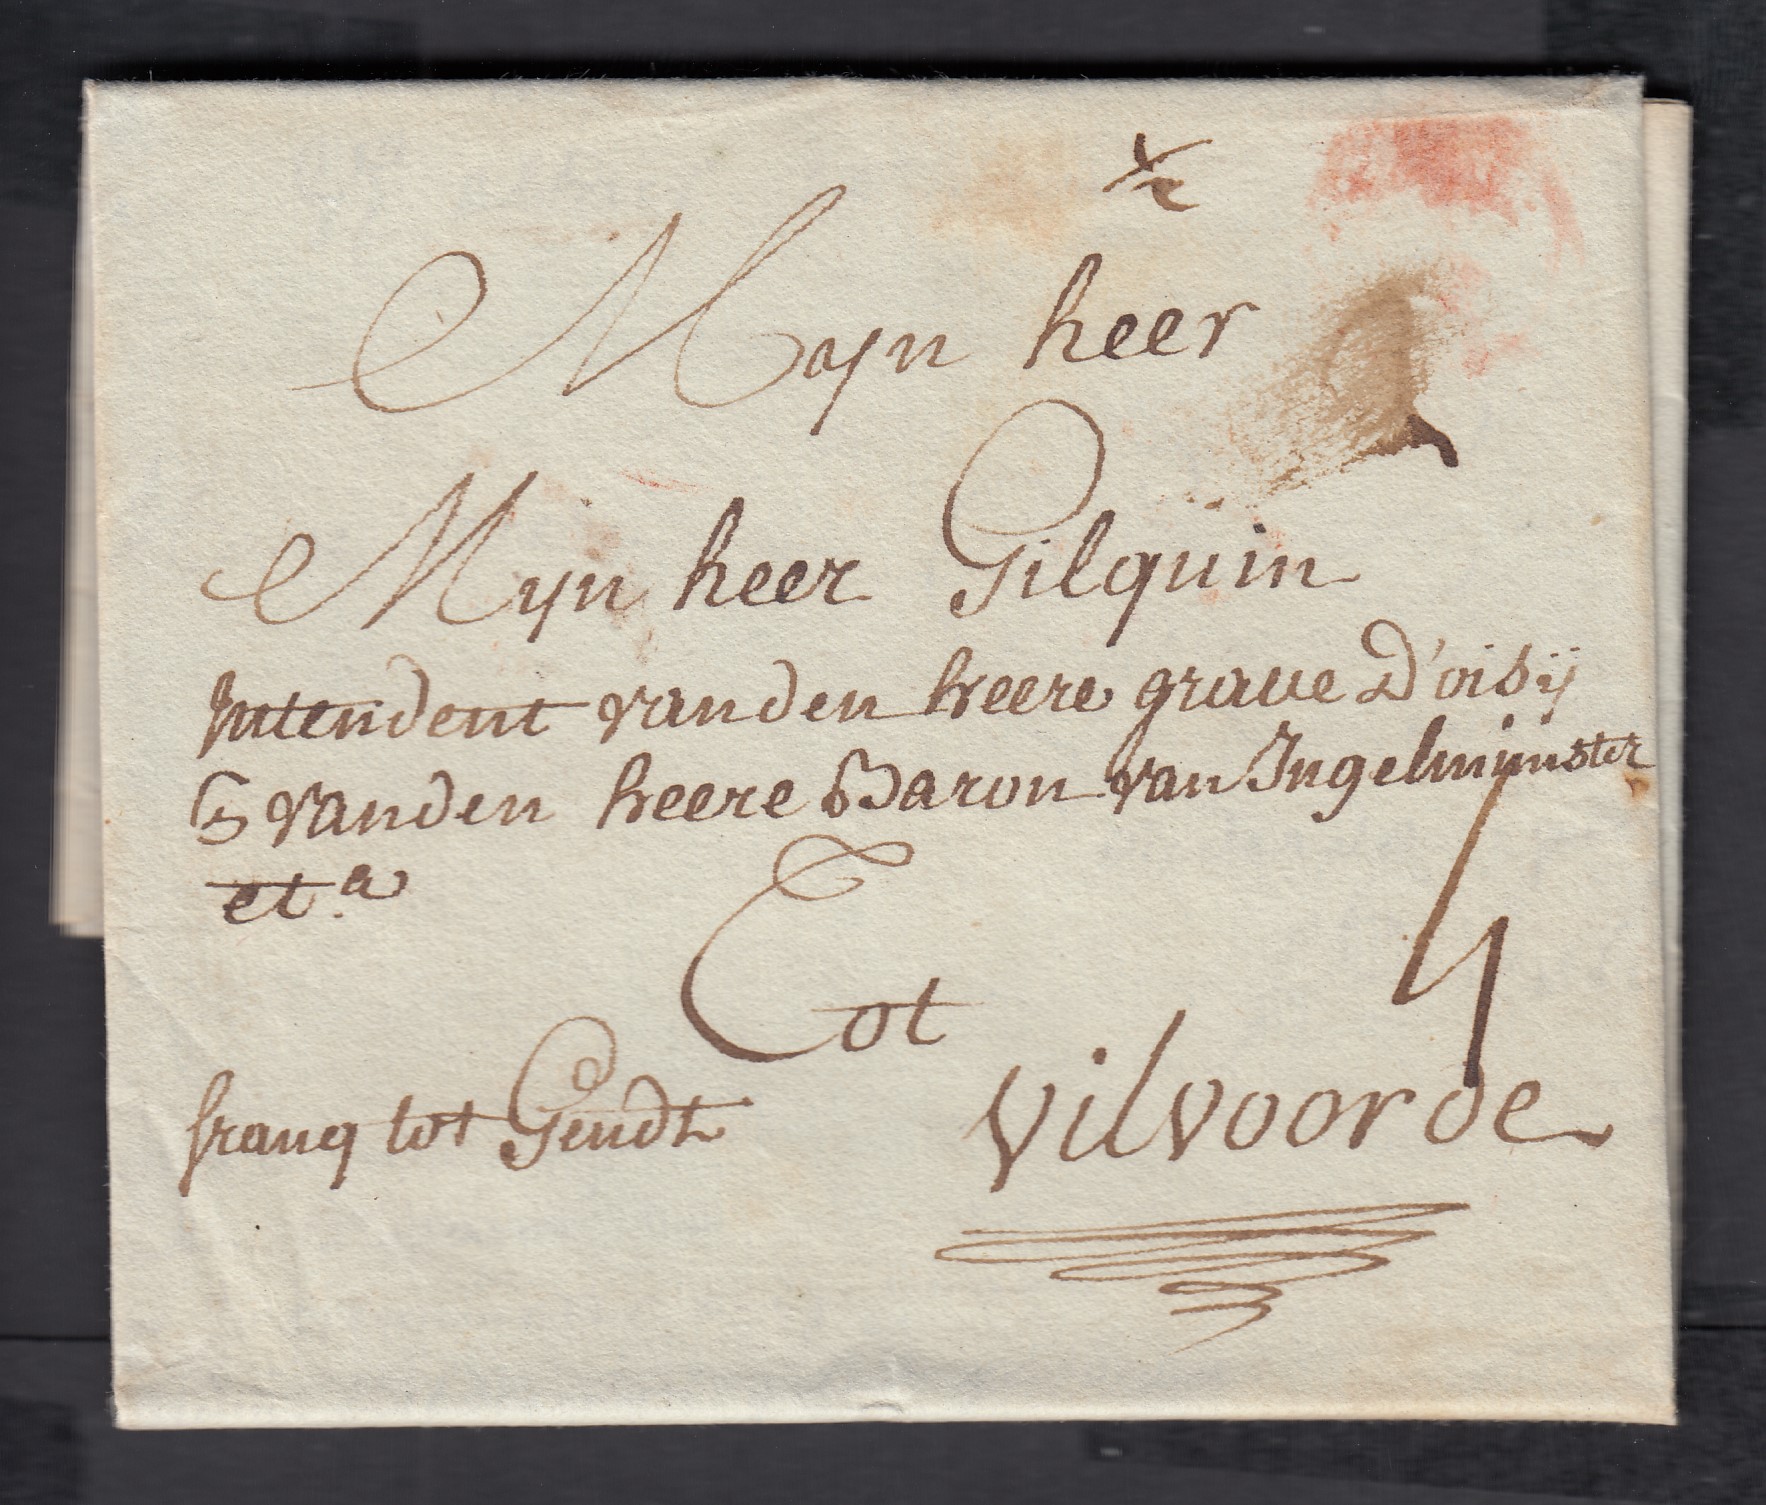 Mijn heer
Mijn heer Gilquin
Intendent vanden heere graue D'oisÿ
& vanden heere Baron van Ingelmunster
etª
Tot
Vilvoorde
franq tot Gendt
4